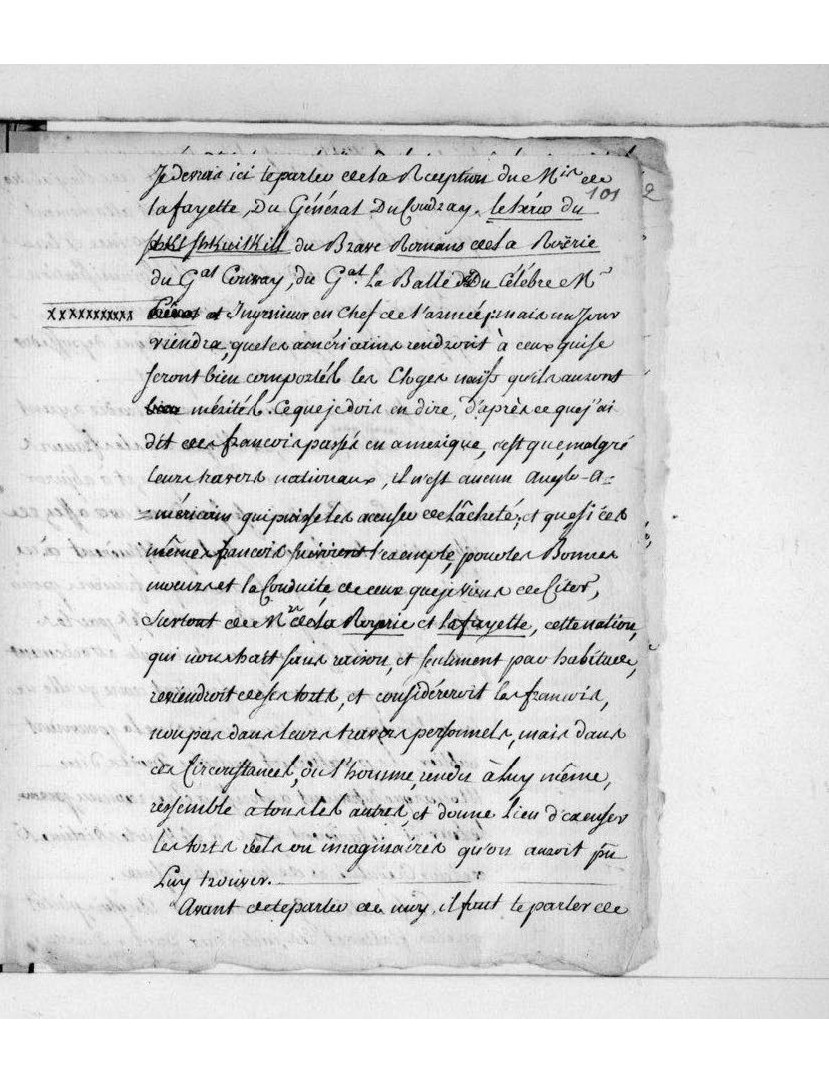 Je devrois ici te parler de la Réception du M.is de
101
2
Lafayette, Du Général Du Coudray, le héro du
Shkuilkill du Brave Romans de la Roërie
du G.al Conway, du G.al La Balle Du Célébre M.r
xxxxxxxxxx et Ingenieur en Chef de l'armée; mais un Jour
viendra, que les américains rendront à ceux qui se
seront bien comportés les Eloges naïfs qu'ils auront
bien mérités. Ce que je dois en dire, D'après ce que j'ai
dit des francois passés en amerique, c'est que, malgré
leurs travers nationaux, il n'est aucun Anglo-A=
=méricain qui puisse les accuser de Lâcheté; et que si ces
mêmes francois suivoient l'exemple, pour les Bonnes
mœurs et la Conduite, de ceux que je viens de Citer,
surtout de M.rs de la Royerie et Lafayette, cette nation,
qui nous hait sans raison, et seulement par habitude,
reviendroit de ses torts, et considéreroit les francois,
non pas dans leurs travers personnels, mais dans
ces Circonstances, où l'homme, rendu à Luy même,
ressemble à tous les autres, et donne Lieu d'excuser
les torts réels ou imaginaires qu'on auroit pu
Luy trouver.
Avant de te parler de moy, il faut te parler de